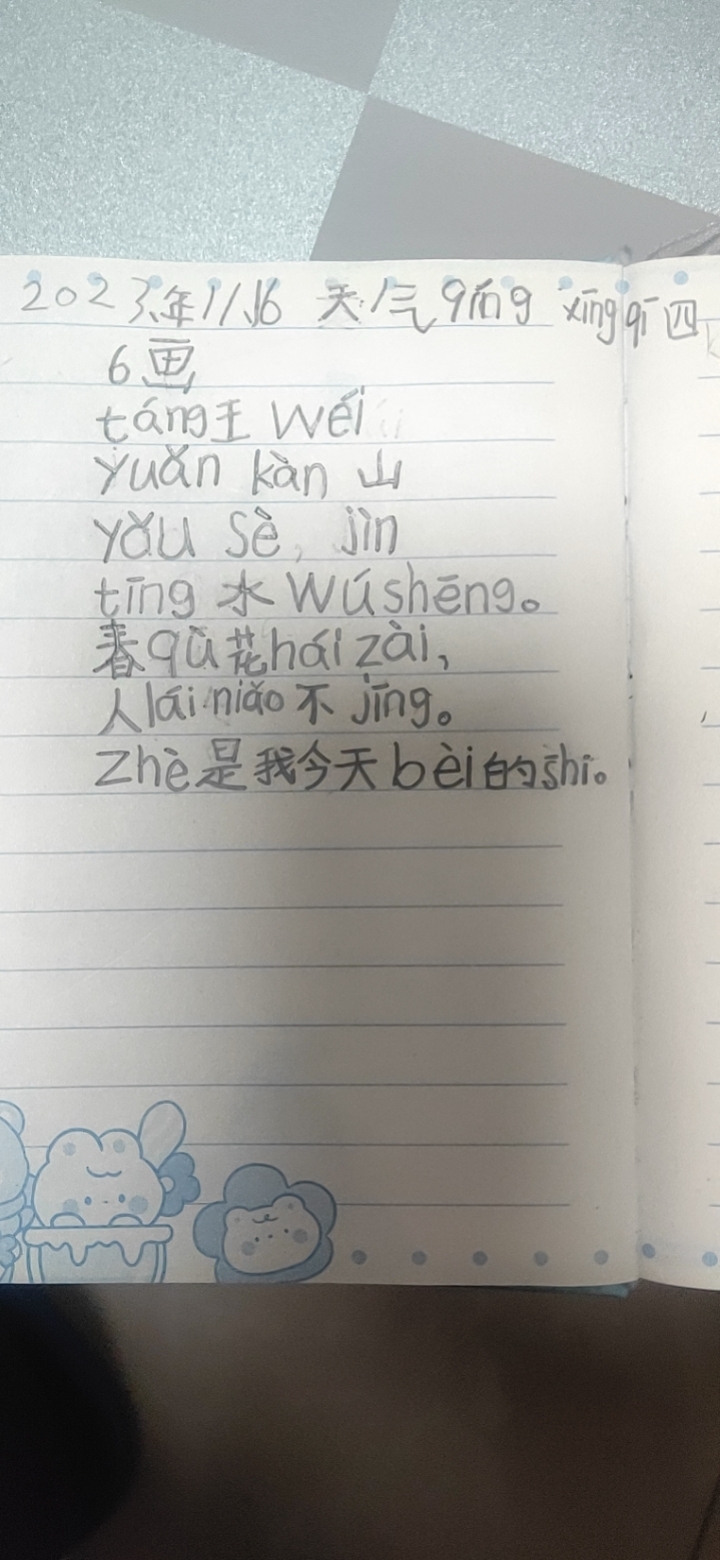 2023.年11.16 天气qíng xīngqī四
6画
táng王wéi
yuǎn kàn 山
yǒu sè, jìn
tīng 水wúshēng。
春qù花hái zài,
人lái niǎo不jīng。
Zhè是我今天bèi的shī。